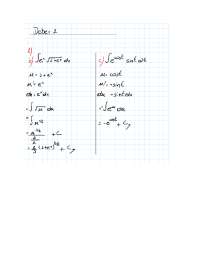 Deber 2
8)
a) ∫eˣ √1+eˣ dx
u = 1+eˣ
u' = eˣ
du = eˣdx
= ∫√u du
= ∫u^1/2
= u^3/2 / 3/2 + C
= 2/3 (1+eˣ)^3/2 + C//
c) ∫e^cost sint dt
u = cost
u' = -sint
du = -sint dt
= ∫e^u du
= -e^cost + C//